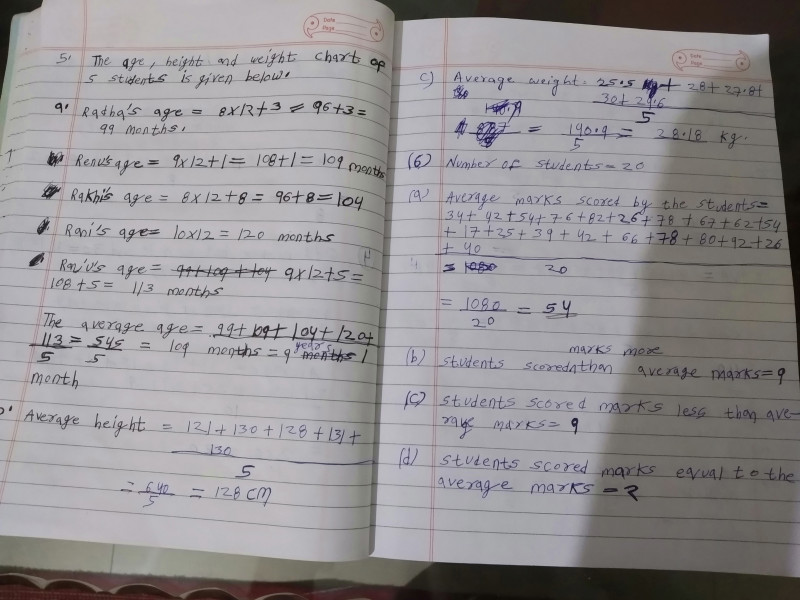 Date
Page
5. The age, height and weight chart of
5 students is given below.
a. Radha's age = 8x12+3 = 96+3=
99 months.
Renu's age = 9x12+1 = 108+1 = 109 months
Rakhi's age = 8x12+8 = 96+8 = 104
Rani's age= 10x12 = 120 months
Ravi's age = 99+109+104 9x12+5 =
108+5 = 113 months
The average age = 99+109+104+120+
113 = 545 = 109 months = 9 years months 1
5 5
month
Average height = 121+130+128+131+
130
5
= 640 = 128 CM
5
Date
Page
c) Average weight. 25.5 + 28+27.8+
30+29.6
5
= 190.9 = 28.18 kg.
5
(6) Number of students = 20
(a) Average marks scored by the students=
34+42+54+76+82+26+78+67+62+54
+17+25+39+42+66+78+80+92+26
+40
= 1080 20
= 1080 = 54
20
marks more
(b) students scored than average marks=9
(c) students scored marks less than ave-
rage marks= 9
(d) students scored marks equal to the
average marks = 2